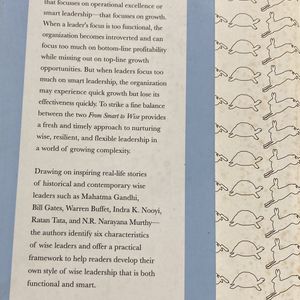 that focuses on operational excellence or
smart leadership—that focuses on growth.
When a leader's focus is too functional, the
organization becomes introverted and can
focus too much on bottom-line profitability
while missing out on top-line growth
opportunities. But when leaders focus too
much on smart leadership, the organization
may experience quick growth but lose its
effectiveness quickly. To strike a fine balance
between the two From Smart to Wise provides
a fresh and timely approach to nurturing
wise, resilient, and flexible leadership in
a world of growing complexity.
Drawing on inspiring real-life stories
of historical and contemporary wise
leaders such as Mahatma Gandhi,
Bill Gates, Warren Buffet, Indra K. Nooyi,
Ratan Tata, and N.R. Narayana Murthy—
the authors identify six characteristics
of wise leaders and offer a practical
framework to help readers develop their
own style of wise leadership that is both
functional and smart.